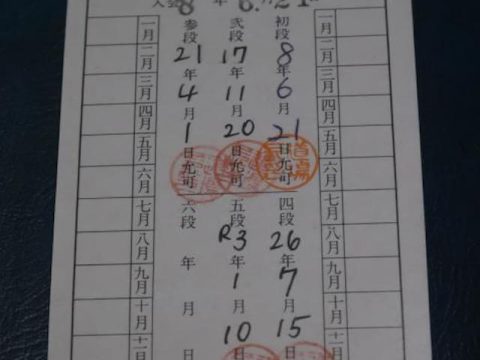 一月 二月 三月 四月 五月 六月 七月 八月 九月 十月
初段 8年6月21日允可
四段 26年7月15日
弐段 17年11月20日允可
五段 R3年1月10日
参段 21年4月1日允可
六段 年 月 日
一月 二月 三月 四月 五月 六月 七月 八月 九月 十月